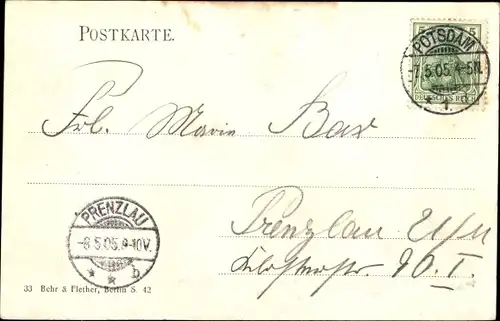 POSTKARTE.
5 5
DEUTSCHES REICH
POTSDAM
7.5.05. 4-5N.
* 1. d
Frl. Marie Bax
PRENZLAU
-8.5.05.9-10V.
* * b
Prenzlau U/M
90. I.
33 Behr & Flether, Berlin S. 42